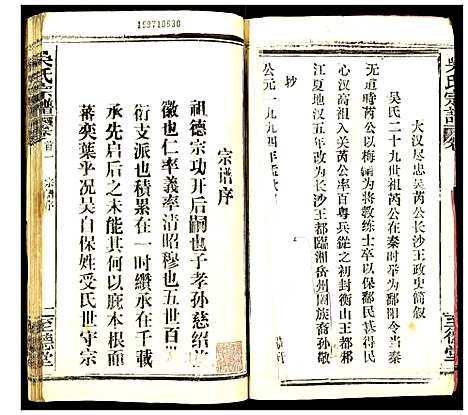 大汉尽忠吴芮公长沙王政史简叙
吴氏二十九世祖芮公在秦时举为鄱阳令当秦
无道时芮公以梅鋗为将教练士卒以保鄱民甚得
心汉高祖入关芮公率百粤兵从之初封衡山王都邾
江夏地汉五年改为长沙王都临湘岳州国族裔孙敬
抄
公元一九九四年
宗谱序
祖德宗功开后嗣也子孝孙慈绍前
徽也仁率义率清昭穆也五世百
衍支派也积累在一时缵承在千载
承先启后之未能其何以庇本根而
蕃奕叶乎况吴自保姓受氏世守宗
吴氏宗谱
卷首一
宗谱序
至德堂
吴氏宗谱
至德堂
150710630